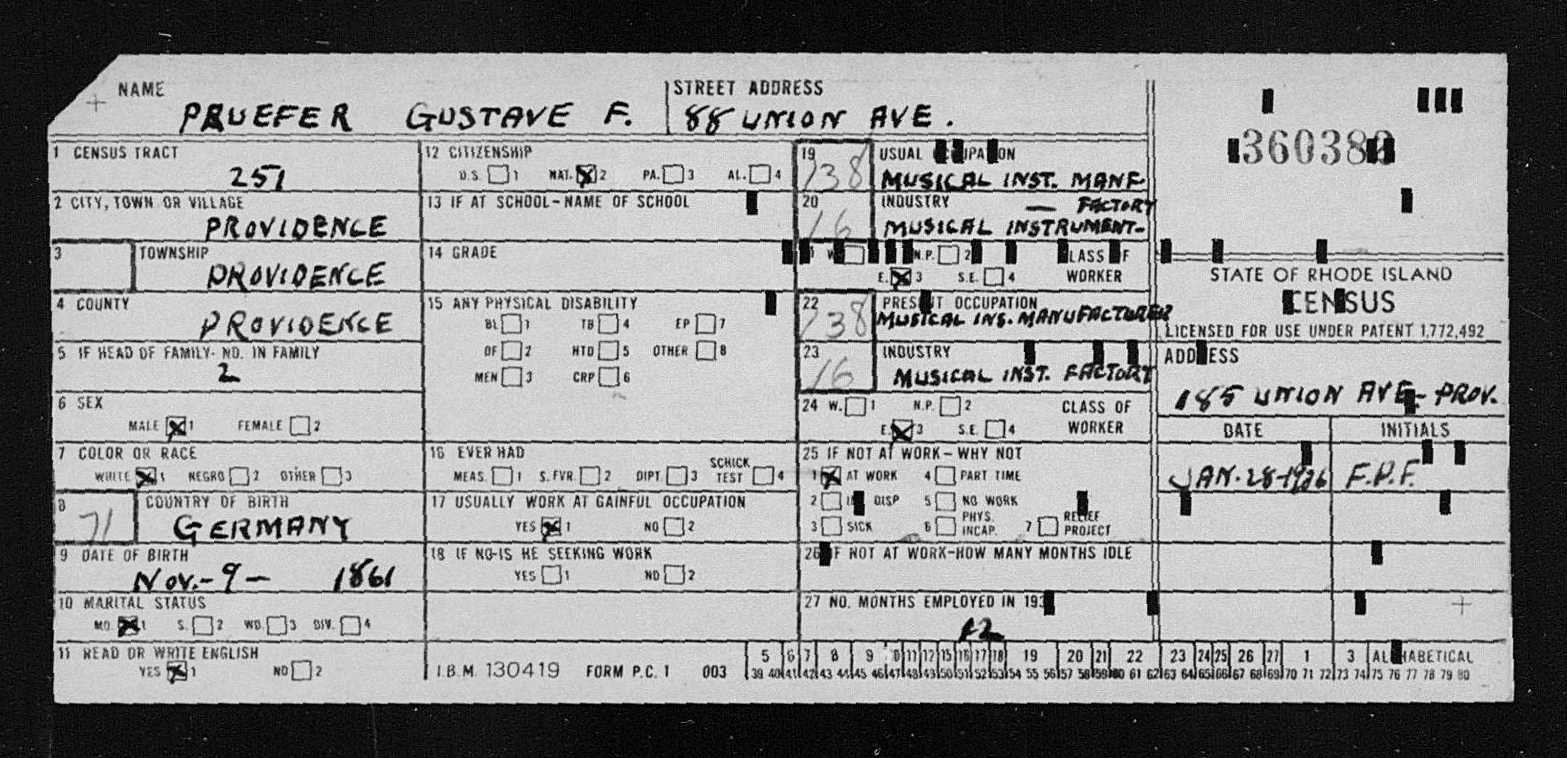 NAME
PRUEFER GUSTAVE F.
STREET ADDRESS
88 UNION AVE.
1 CENSUS TRACT
251
2 CITY, TOWN OR VILLAGE
PROVIDENCE
3 TOWNSHIP
PROVIDENCE
4 COUNTY
PROVIDENCE
5 IF HEAD OF FAMILY- NO. IN FAMILY
2
6 SEX
MALE 1 FEMALE 2
7 COLOR OR RACE
WHITE 1 NEGRO 2 OTHER 3
8 COUNTRY OF BIRTH
71 GERMANY
9 DATE OF BIRTH
NOV.-9- 1861
10 MARITAL STATUS
MD. 1 S. 2 WD. 3 DIV. 4
11 READ OR WRITE ENGLISH
YES 1 NO 2
12 CITIZENSHIP
U.S. 1 NAT. 2 PA. 3 AL. 4
13 IF AT SCHOOL-NAME OF SCHOOL
14 GRADE
15 ANY PHYSICAL DISABILITY
BL 1 TB 4 EP 7
DF 2 HTD 5 OTHER 8
MEN 3 CRP 6
16 EVER HAD
MEAS. 1 S. FVR. 2 DIPT. 3 SCHICK TEST 4
17 USUALLY WORK AT GAINFUL OCCUPATION
YES 1 NO 2
18 IF NO-IS HE SEEKING WORK
YES 1 NO 2
I.B.M. 130419 FORM P.C. 1 003
19 USUAL OCCUPATION
138 MUSICAL INST. MANF
20 INDUSTRY — FACTORY
16 MUSICAL INSTRUMENT-
W N.P. 2 CLASS OF
E. 3 S.E. 4 WORKER
22 PRESENT OCCUPATION
138 MUSICAL INS. MANUFACTURER
23 INDUSTRY
16 MUSICAL INST. FACTORY
24 W. 1 N.P. 2 CLASS OF
E. 3 S.E. 4 WORKER
25 IF NOT AT WORK-WHY NOT
1 AT WORK 4 PART TIME
2 DISP 5 NO WORK
3 SICK 6 PHYS. INCAP. 7 RELIEF PROJECT
26 IF NOT AT WORK-HOW MANY MONTHS IDLE
27 NO. MONTHS EMPLOYED IN 193
12
360380
STATE OF RHODE ISLAND
CENSUS
LICENSED FOR USE UNDER PATENT 1,772,492
ADDRESS
185 UNION AVE- PROV.
DATE INITIALS
JAN-28-1936 F.P.F.
5 6 7 8 9 10 11 12 15 16 17 18 19 20 21 22 23 24 25 26 27 1 3 ALPHABETICAL